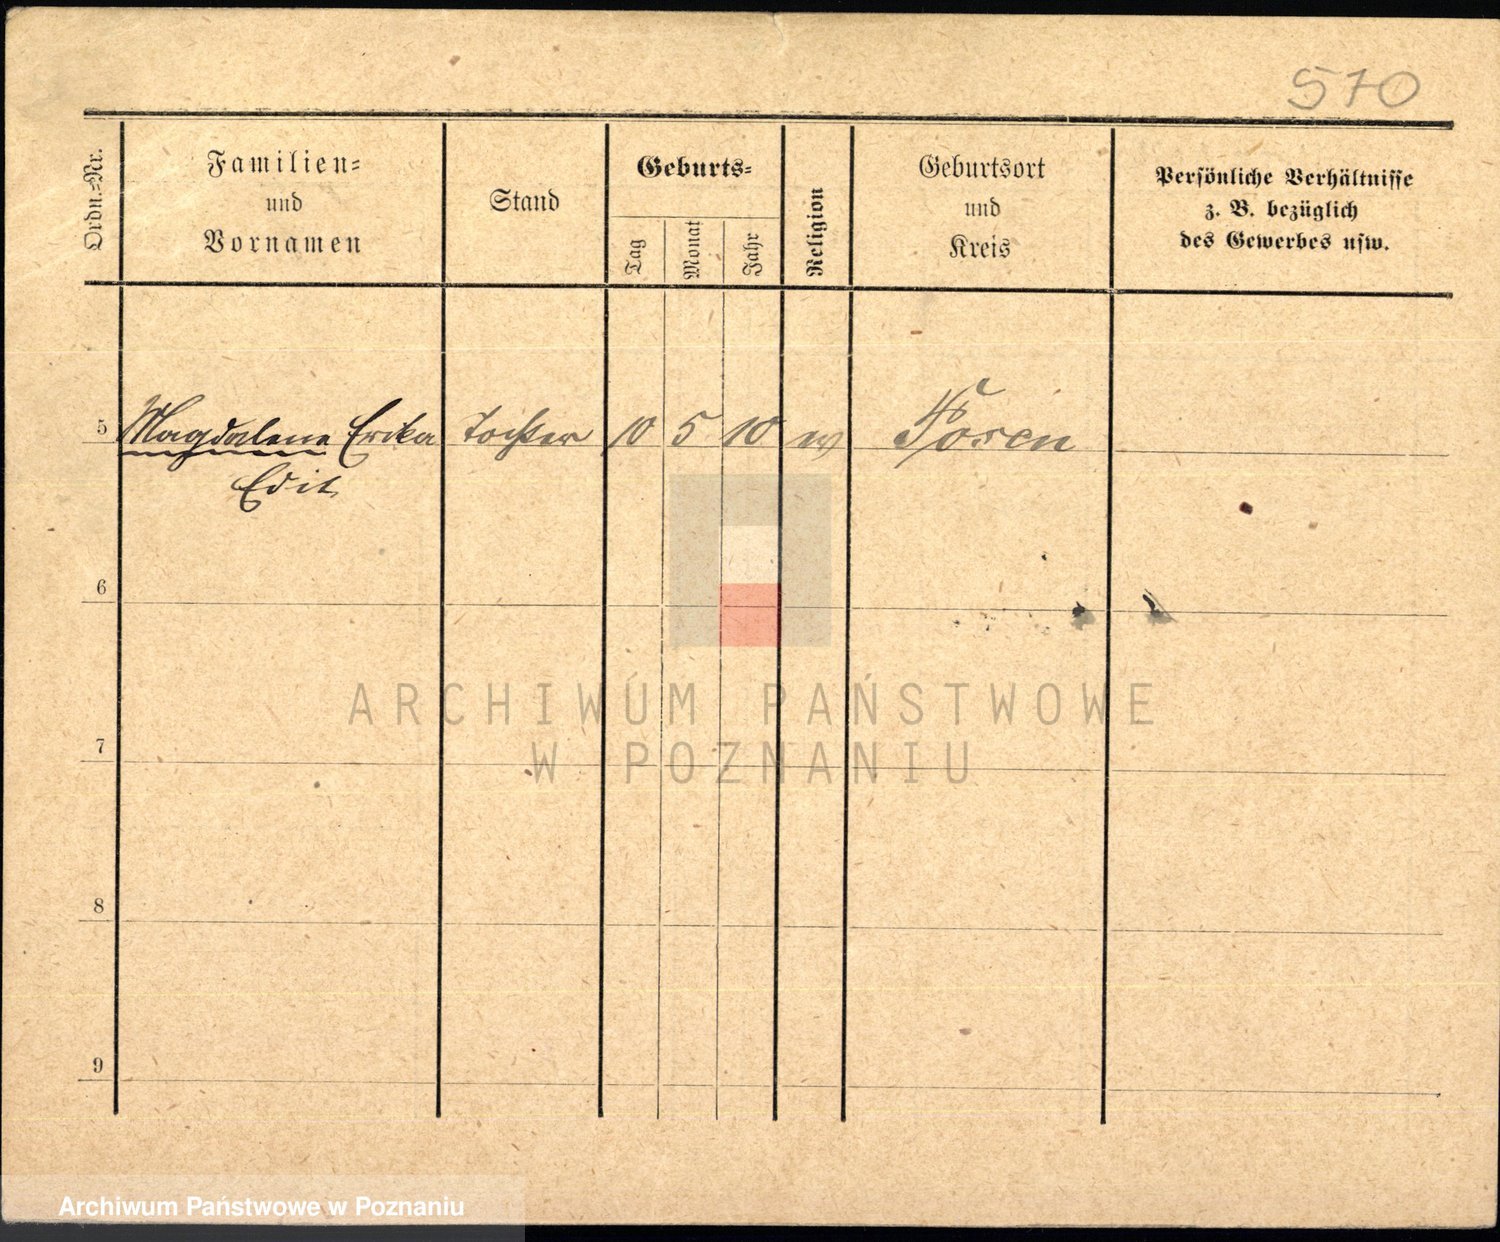 570
Ordn.-Nr.
Familien-
und
Vornamen
Stand
Geburts-
Tag
Monat
Jahr
Religion
Geburtsort
und
Kreis
Persönliche Verhältnisse
z. B. bezüglich
des Gewerbes usw.
5 Magdalena Erika Tochter 10 5 10 Posen
Edit
6
7
8
9
ARCHIWUM PAŃSTWOWE
W POZNANIU
Archiwum Państwowe w Poznaniu